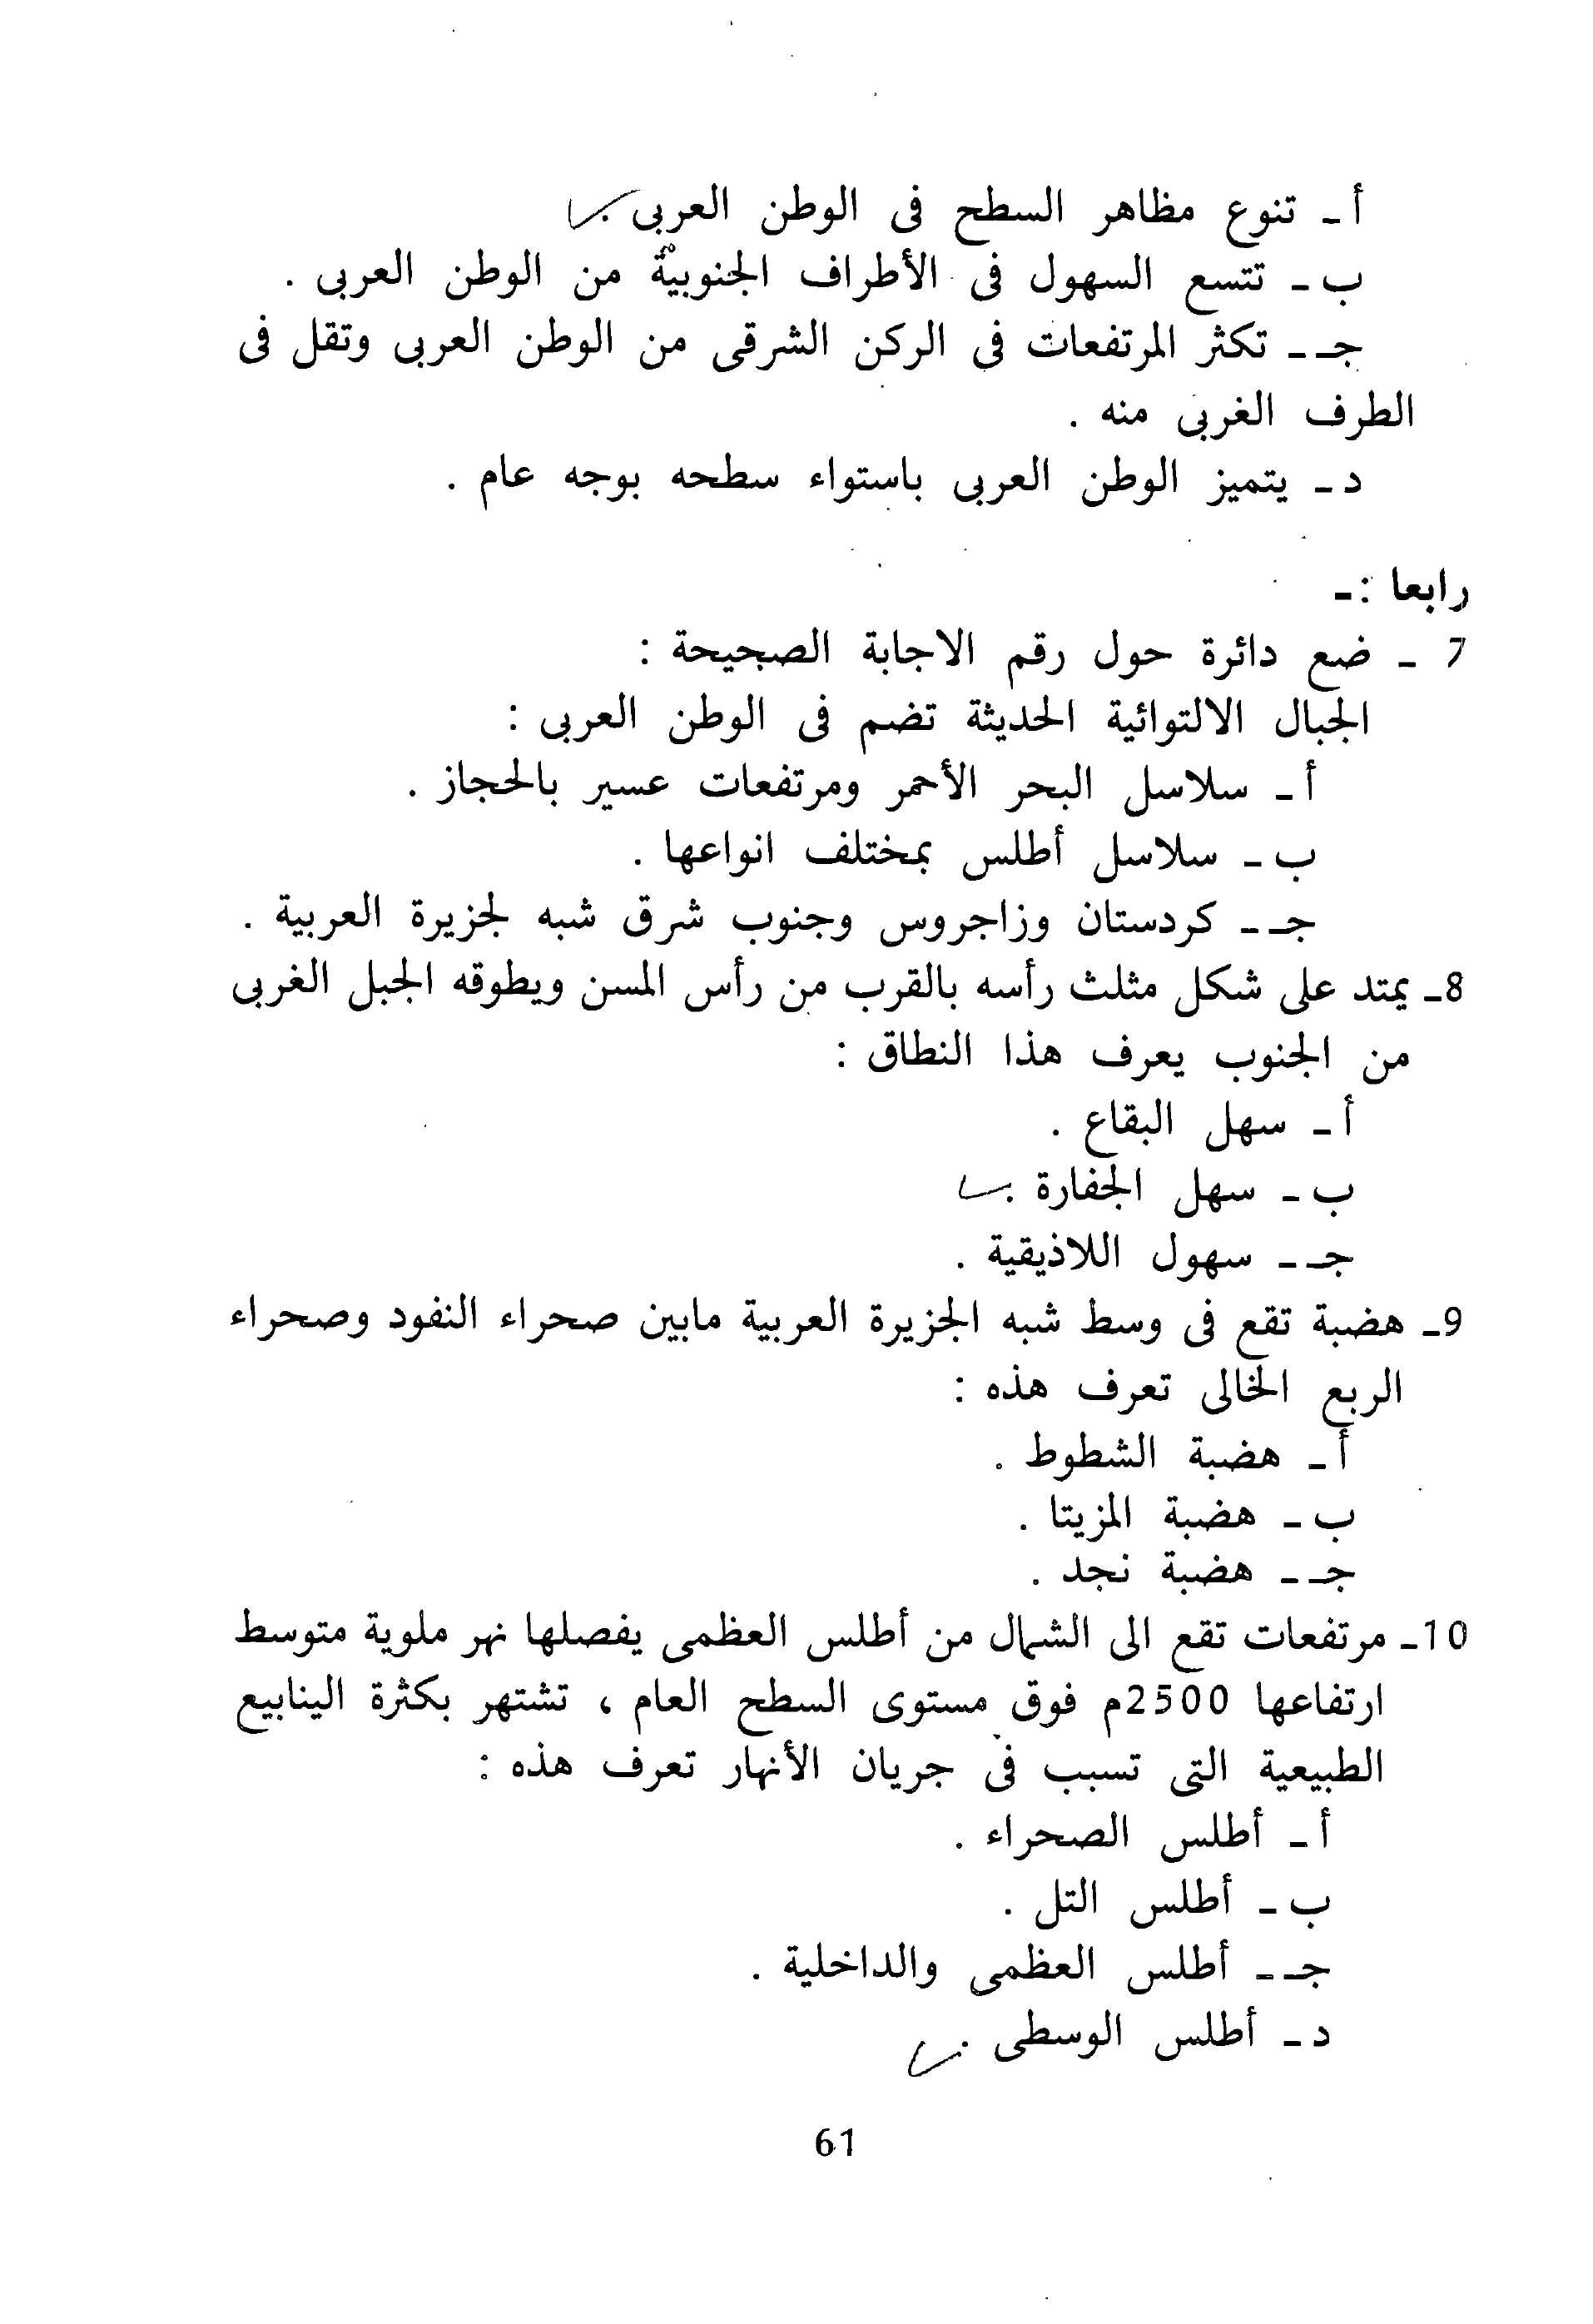 أ ـ تنوع مظاهر السطح فى الوطن العربى .
ب ـ تتسع السهول فى الأطراف الجنوبية من الوطن العربى .
جـ ـ تكثر المرتفعات فى الركن الشرقى من الوطن العربى وتقل فى
الطرف الغربى منه .
د ـ يتميز الوطن العربى باستواء سطحه بوجه عام .
رابعا : ـ
7 ـ ضع دائرة حول رقم الاجابة الصحيحة :
الجبال الالتوائية الحديثة تضم فى الوطن العربى :
أ ـ سلاسل البحر الأحمر ومرتفعات عسير بالحجاز .
ب ـ سلاسل أطلس بمختلف انواعها .
جـ ـ كردستان وزاجروس وجنوب شرق شبه لجزيرة العربية .
8ـ يمتد على شكل مثلث رأسه بالقرب من رأس المسن ويطوقه الجبل الغربى
من الجنوب يعرف هذا النطاق :
أ ـ سهل البقاع .
ب ـ سهل الجفارة .
جـ ـ سهول اللاذيقية .
9ـ هضبة تقع فى وسط شبه الجزيرة العربية مابين صحراء النفود وصحراء
الربع الخالى تعرف هذه :
أ ـ هضبة الشطوط .
ب ـ هضبة المزيتا .
جـ ـ هضبة نجد .
10ـ مرتفعات تقع الى الشمال من أطلس العظمى يفصلها نهر ملوية متوسط
ارتفاعها 2500م فوق مستوى السطح العام ، تشتهر بكثرة الينابيع
الطبيعية التى تسبب فى جريان الأنهار تعرف هذه :
أ ـ أطلس الصحراء .
ب ـ أطلس التل .
جـ ـ أطلس العظمى والداخلية .
د ـ أطلس الوسطى .
61